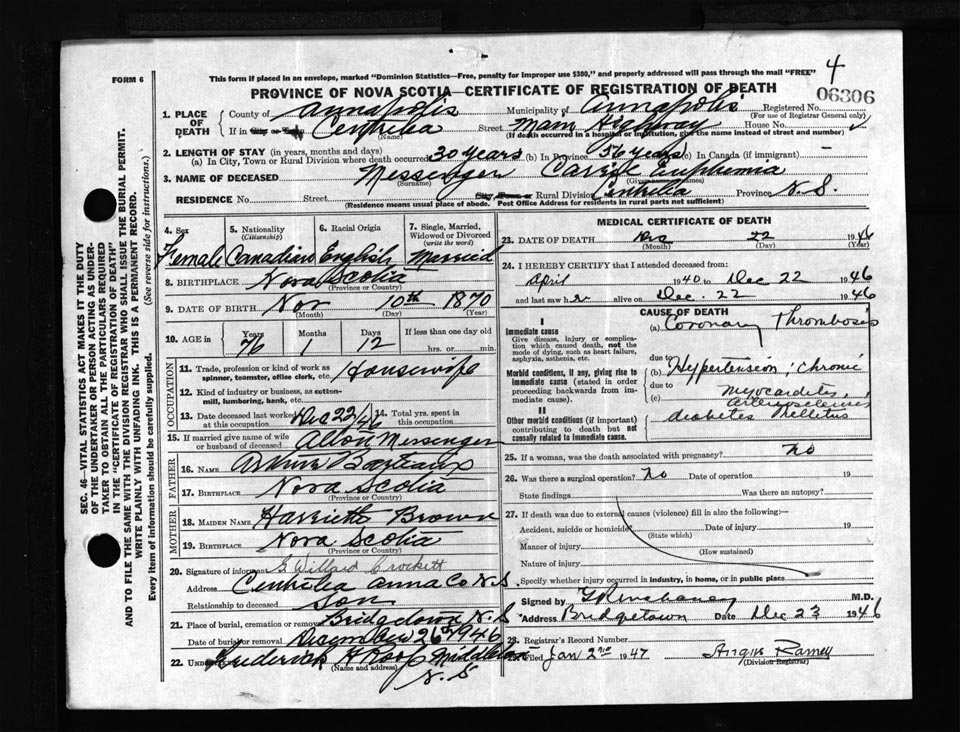 4
FORM 6
This form if placed in an envelope, marked "Dominion Statistics—Free, penalty for improper use $300," and properly addressed will pass through the mail "FREE"
PROVINCE OF NOVA SCOTIA—CERTIFICATE OF REGISTRATION OF DEATH
06306
1. PLACE OF DEATH County of Annapolis Municipality of Annapolis Registered No.
(For use of Registrar General only)
If in City or Town Centrelea Street Main Highway House No.
(Name) (If death occurred in a hospital or institution, give the name instead of street and number)
2. LENGTH OF STAY (in years, months and days)
(a) In City, Town or Rural Division where death occurred 30 years (b) In Province 56 years (c) In Canada (if immigrant) —
3. NAME OF DECEASED Messenger Euphemia
(Surname) (Given names)
RESIDENCE No. Street City, Town or Rural Division Centrelea Province N.S.
(Residence means usual place of abode. Post Office Address for residents in rural parts not sufficient)
4. Sex 5. Nationality (Citizenship) 6. Racial Origin 7. Single, Married, Widowed or Divorced (write the word)
Female Canadian English Married
8. BIRTHPLACE Nova Scotia
(Province or Country)
9. DATE OF BIRTH Nov 10th 1870
(Month) (Day) (Year)
10. AGE in Years Months Days If less than one day old
76 1 12 hrs. or min.
OCCUPATION
11. Trade, profession or kind of work as spinner, teamster, office clerk, etc. Housewife
12. Kind of industry or business, as cotton-mill, lumbering, bank, etc.
13. Date deceased last worked at this occupation Dec 22/46 14. Total yrs. spent in this occupation
15. If married give name of wife or husband of deceased Messenger
FATHER
16. NAME
17. BIRTHPLACE Nova Scotia
(Province or Country)
MOTHER
18. MAIDEN NAME Harriett Brown
19. BIRTHPLACE Nova Scotia
(Province or Country)
20. Signature of informant G Willard Crockett
Address Centrelea Anna Co N.S.
Relationship to deceased son
21. Place of burial, cremation or removal Bridgetown N.S
Date of burial or removal December 26th 1946
22. Frederick Roop Middleton
(Name and address)
N.S
MEDICAL CERTIFICATE OF DEATH
23. DATE OF DEATH Dec 22 1946
(Month) (Day) (Year)
24. I HEREBY CERTIFY that I attended deceased from:
April 1940 to Dec 22 1946
and last saw her alive on Dec. 22 1946
CAUSE OF DEATH
I
Immediate cause
Give disease, injury or complication which caused death, not the mode of dying, such as heart failure, asphyxia, asthenia, etc.
(a) Coronary Thrombosis
due to
Morbid conditions, if any, giving rise to immediate cause (stated in order proceeding backwards from immediate cause).
(b) Hypertension; chronic
due to
(c) myocarditis,
II
Other morbid conditions (if important) contributing to death but not causally related to immediate cause.
diabetes Mellitus
25. If a woman, was the death associated with pregnancy? no
26. Was there a surgical operation? no Date of operation 19
State findings Was there an autopsy?
27. If death was due to external causes (violence) fill in also the following:—
Accident, suicide or homicide? Date of injury 19
(State which)
Manner of injury
(How sustained)
Nature of injury
Specify whether injury occurred in industry, in home, or in public place
Signed by M.D.
Address Bridgetown Date Dec 23 1946
28. Registrar's Record Number
Filed Jan 2nd 1947 Angus Ramey
(Division Registrar)
SEC. 46—VITAL STATISTICS ACT MAKES IT THE DUTY
OF THE UNDERTAKER OR PERSON ACTING AS UNDER-
TAKER TO OBTAIN ALL THE PARTICULARS REQUIRED
IN THE "CERTIFICATE OF REGISTRATION OF DEATH"
AND TO FILE THE SAME WITH THE DIVISION REGISTRAR WHO SHALL ISSUE THE BURIAL PERMIT.
WRITE PLAINLY WITH UNFADING INK. THIS IS A PERMANENT RECORD.
Every item of information should be carefully supplied. (See reverse side for instructions.)